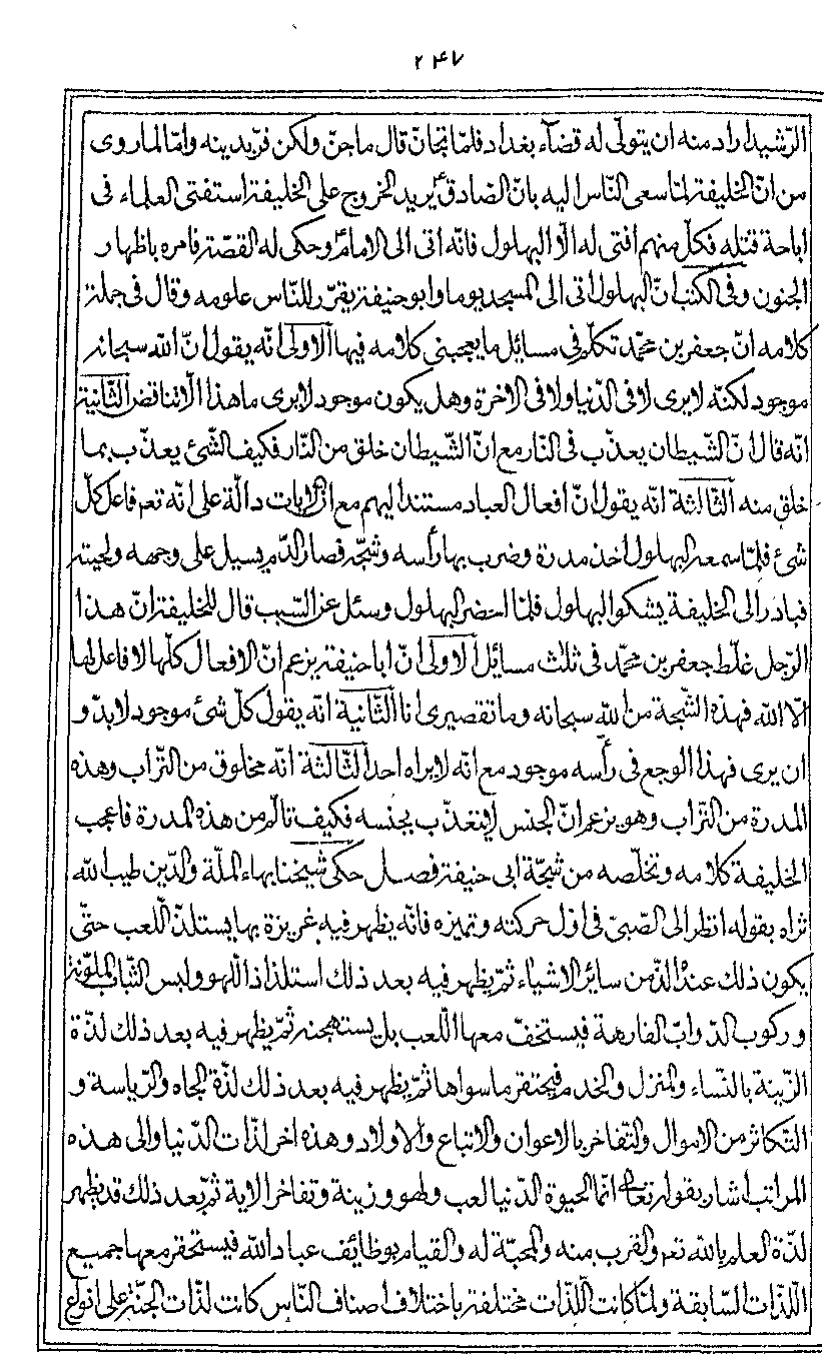 ۲۴۷
الرّشيد اراد منه ان يتولّى له قضآء بغداد فلمّا تجانّ قال ما جنّ ولكن فرّ بدينه وامّا لما روى
من انّ الخليفة لمّا سعى النّاس اليه بانّ الصّادق ع يريد الخروج على الخليفة استفتى العلماء فى
اباحة قتله فكلّ منهم افتى له الّا البهلول فانّه اتى الى الامام ع وحكى له القصّة فامره باظهار
الجنون وفى الكتب انّ البهلول اتى الى المسجد يوما وابو حنيفة يقرّر للنّاس علومه وقال فى جملة
كلامه انّ جعفر بن محمّد تكلّم فى مسائل ما يعجبنى كلامه فيها الاولى انّه يقول انّ الله سبحانه
موجود لكنّه لا يرى لا فى الدّنيا ولا فى الاخرة وهل يكون موجود لا يرى ما هذا الّا تناقض الثّانية
انّه قال انّ الشّيطان يعذّب فى النّار مع انّ الشّيطان خلق من النّار فكيف الشّئ يعذّب بما
خلق منه الثّالثة انّه يقول انّ افعال العباد مستندة اليهم مع انّ الايات دالّة على انّه تعم فاعل كلّ
شئ فلمّا سمعه البهلول اخذ مدرة وضرب بها رأسه وشجّه فصار الدّم يسيل على وجهه ولحيته
فبادر الى الخليفة يشكوا البهلول فلمّا احضر البهلول وسئل عن السّبب قال للخليفة انّ هذا
الرّجل غلّط جعفر بن محمّد فى ثلث مسائل الاولى انّ ابا حنيفة يزعم انّ الافعال كلّها لا فاعل لها
الّا الله فهذه الشّجة من الله سبحانه وما تقصيرى انا الثّانية انّه يقول كلّ شئ موجود لا بدّ و
ان يرى فهذا الوجع فى رأسه موجود مع انّه لا يراه احد الثّالثة انّه مخلوق من التّراب وهذه
المدرة من التّراب وهو يزعم انّ الجنس لا يتعذّب بجنسه فكيف تالّم من هذه المدرة فاعجب
الخليفة كلامه وتخلّصه من شجّة ابى حنيفة فصل حكى شيخنا بهاء الملّة والدّين طيب الله
ثراه بقوله انظر الى الصّبىّ فى اوّل حركته وتميزه فانّه يظهر فيه غريزة بها يستلذّ اللّعب حتّى
يكون ذلك عنده الذّ من سائر الاشياء ثمّ يظهر فيه بعد ذلك استلذاذ اللّهو ولبس الثّياب الملوّنة
وركوب الدّوابّ الفارهة فيستخفّ معها اللّعب بل يستهجنه ثمّ يظهر فيه بعد ذلك لذّة
الزّينة بالنّساء والمنزل والخدم فيحتقر ما سواها ثمّ يظهر فيه بعد ذلك لذّة الجاه والرّياسة و
التّكاثر من الاموال والتّفاخر بالاعوان والاتباع والاولاد وهذه اخر لذّات الدّنيا والى هذه
المراتب اشار بقوله تعالى انّما الحيوة الدّنيا لعب ولهو وزينة وتفاخر الاية ثمّ بعد ذلك قد يظهر
لذّة العلم بالله تعم والقرب منه والمحبّة له والقيام بوظائف عباد الله فيستحقر معها جميع
اللّذّات السّابقة ولمّا كانت اللّذّات مختلفة باختلاف اصناف النّاس كانت لذّات الجنّة على انواع